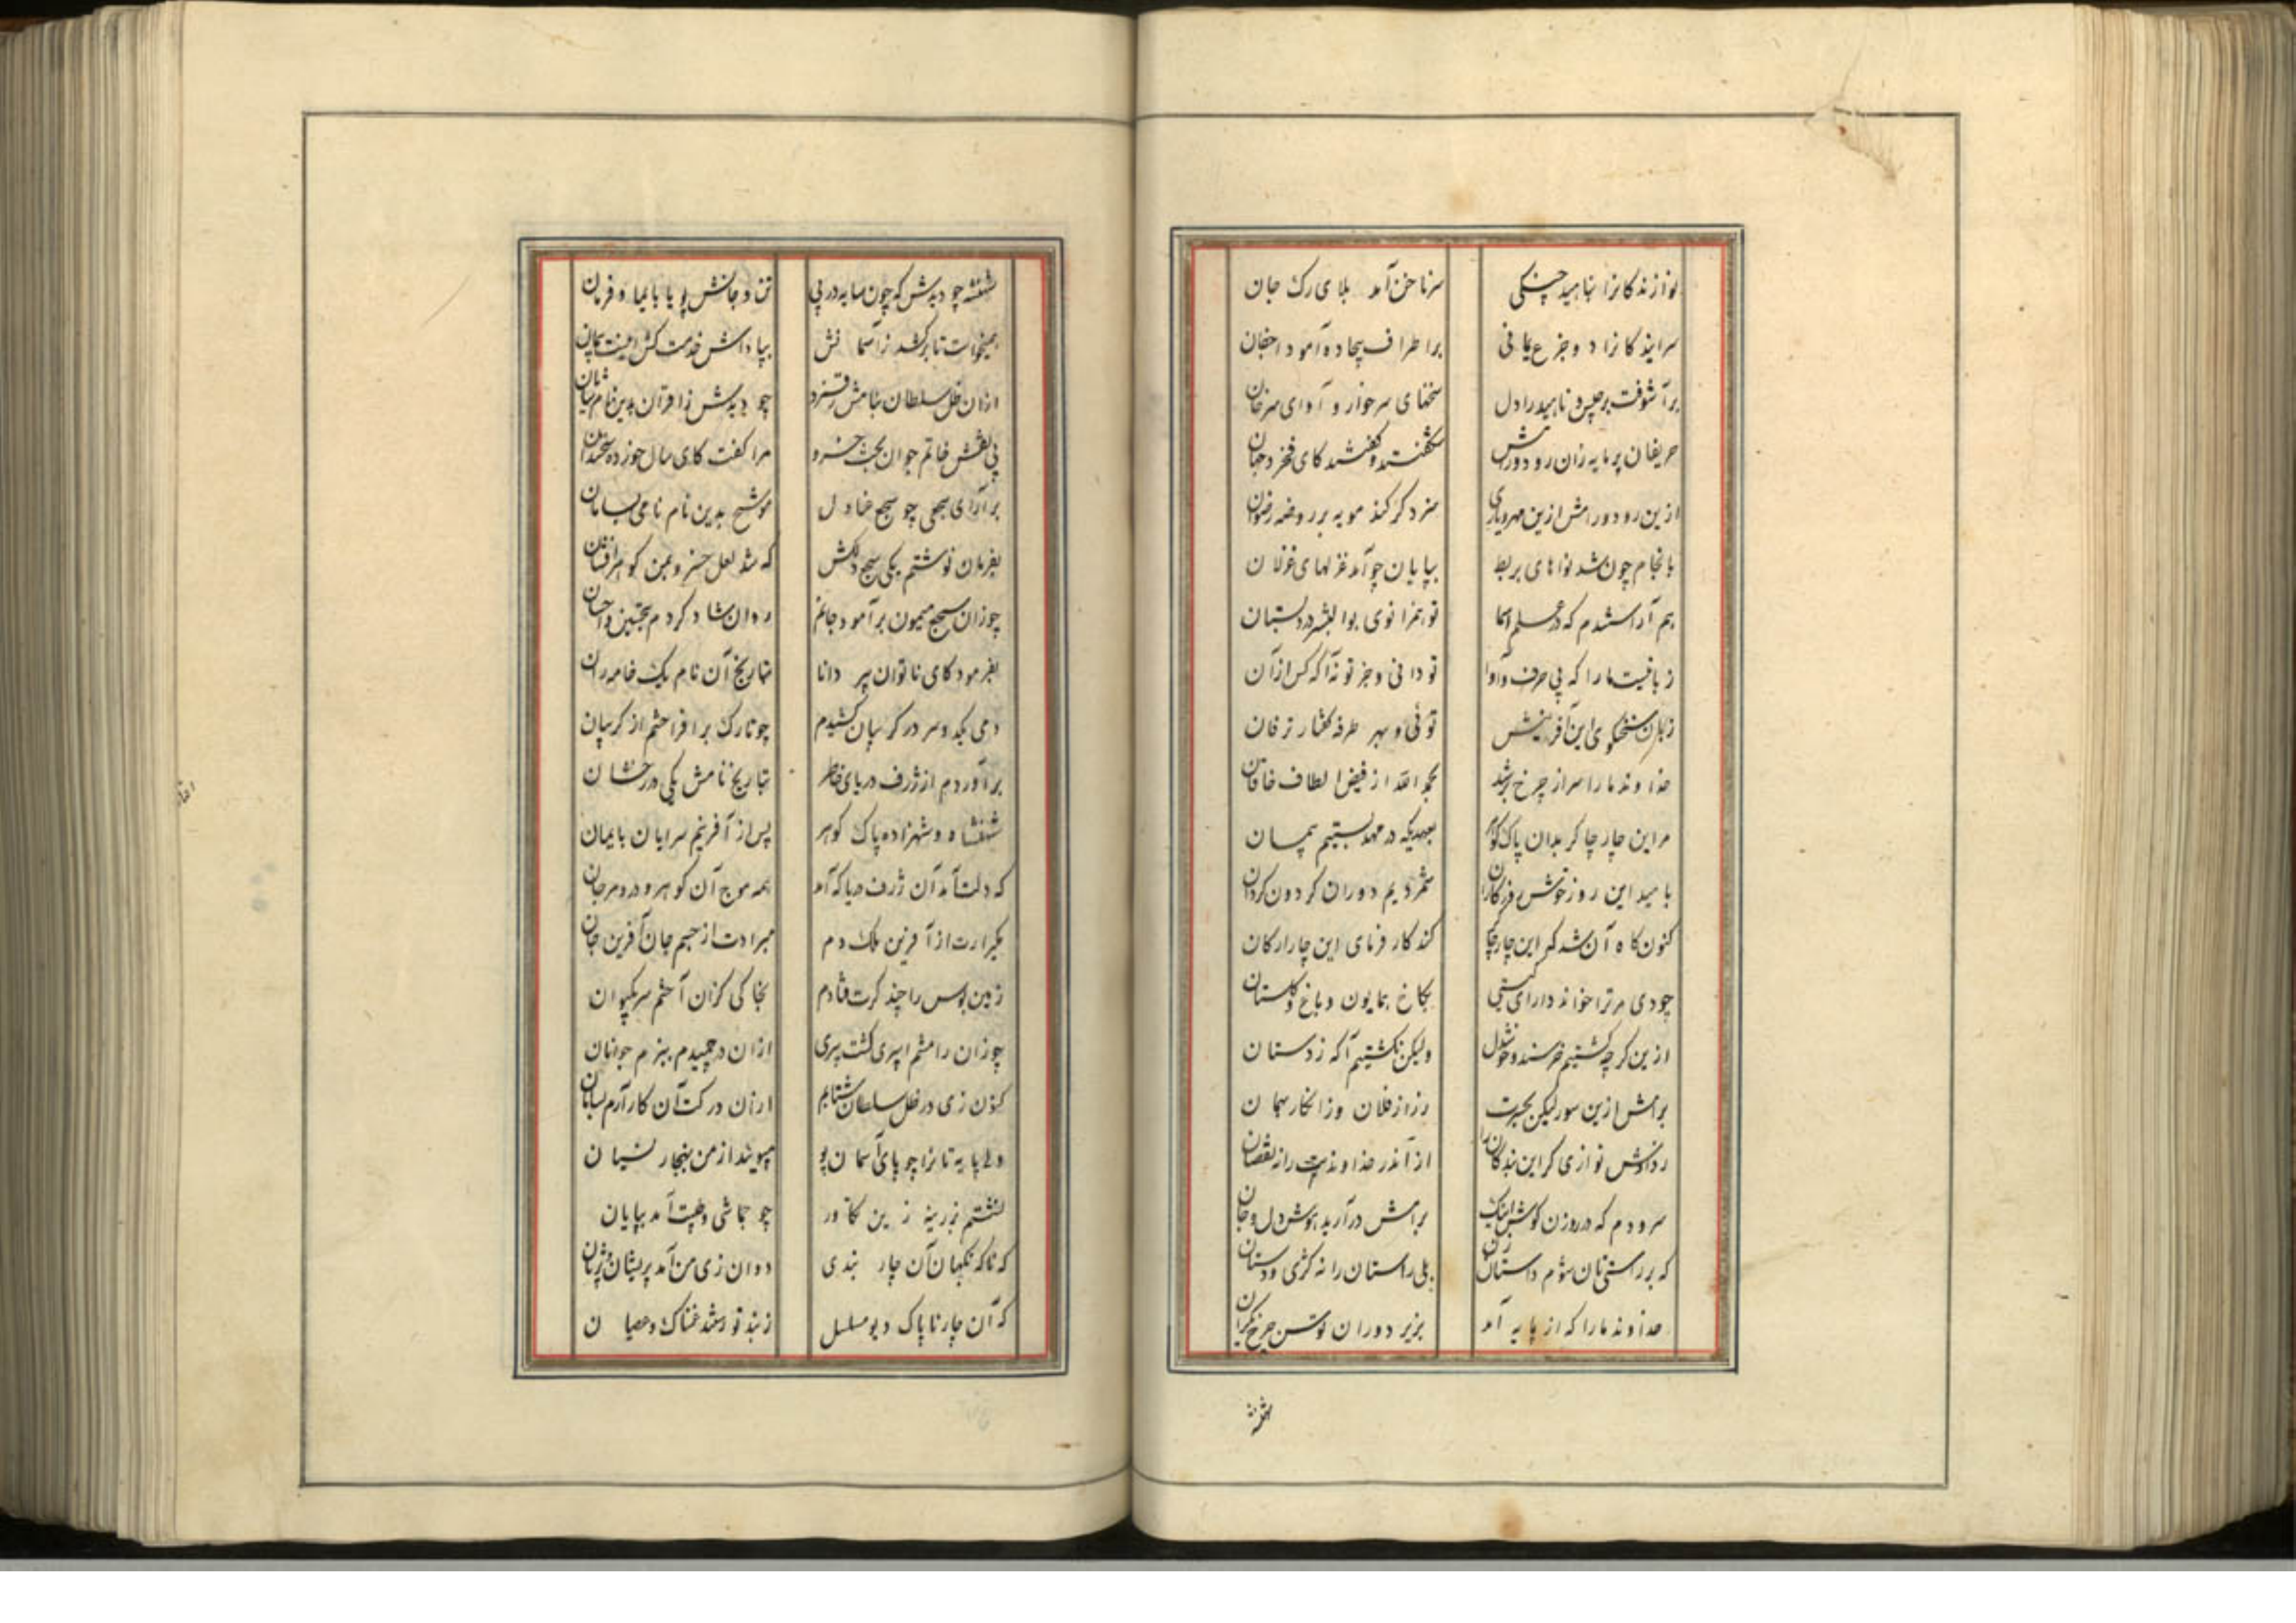 نوازندکانرا بناهید چنکی سرناخن آمد بلای رک جان
سرایندکانرا دو جزع یمانی بر اطراف بیجاده آمود اجفان
برآشوفت برجیس و ناهید را دل سخنهای سرخوار و آوای سرخان
حریفان پرمایه زان رود و رامش شکفتند و کفتند کای فخر دوران
ازین رود و رامش ازین مهر و یاری سزد کر کند مویه بر روضه رضوان
بانجام چون شد نواهای بربط بپایان چو آمد غزلهای غزلان
بهم آراستندم که در علم اسما تو همزانوی بوالبشر در دبستان
زبانیست ما را که بی حرف و آوا تو دانی و جز تو نه آکه کس از آن
زبان سخنکوی این آفرینش توئی و بهر طرفه کفتار ترفان
خداوند ما را سر از چرخ برشد بحمد الله از فیض الطاف خاقان
مر این چار چاکر بدان پاک کوهر بعهدیکه در مهد بستیم پیمان
بامید این روز خوش فر کاران شمردیم دوران کردون کردان
کنون کاه آن شد کر این چار چاکر کند کارفرمای این چار ارکان
چو دی مر ترا خواند دارای کیتی بکاخ همایون و باغ و کلستان
ازین کر چه کشتیم خرسند و خوشدل ولیکن نکشتیم آکه ز دستان
برامش ازین سور لیکن بحیرت رز از فلان وز انکار بهمان
ز دانش نوازی کر این بندکانرا از آن در خداوندیت راز نقصان
سرودم که در روزن کوش اینک برامش در آرید هوش و دل و جان
که بر راستی تان سرایم داستان زن بلی راستان را نه کژی و دستان
خداوند ما را که از پایه آمد بزیر دوران توسن چرخ کردان
شهنشه
شهنشه چو دیدش که چون سایه در پی تن و جانش پویا بایما و فرمان
همیخواست تا برکشد ز آسمانش بپاداش خدمت کش اینست پیمان
ازان ظل سلطان بنامش رقم زد چو دیدش ز اقران بدین نام شایان
پی نقش خاتم جوان بخت خسرو مرا کفت کای سال خورده سخندان
برآرای سجعی چو سجع عنادل موشح بدین نام نامی بسامان
بفرمان نوشتم یکی سجع دلکش که شد لعل خسرو بمن کوهر افشان
چو زان سجع میمون برآمود خاتم روان شاد کردم بتحسین و احسان
بفرمود کای ناتوان پیر دانا بتاریخ آن نام یک خامه ران
دمی بکدو سر در کریبان کشیدم چو تارک برافراختم از کریبان
برآوردم از ژرف دریای خاطر بتاریخ نامش یکی در رخشان
شهنشاه و شهزاده پاک کوهر پس از آفرینم سرایان بایمان
که دلت آمد آن ژرف دریا که آمد همه موج آن کوهر و در و مرجان
بکیرادت از آفرین ملک دم مبرادت از جسم جان آفرین جان
زمین بوس را چند کرت فتادم بخاکی کزان آختم سر بکیوان
چو زان رامشم اسپری کشت پیری ازان در چمیدم ببزم جوانان
کنون زی در ظل سلطان شتابم ازان در کت آن کار آرم بسامان
ولی پایه تانرا چو پای آسمان پو مپویند از من بهنجار نسیان
نشستم بزرینه زین تکاور چو چاشی و هیئت آمد بپایان
که ناکه نکهبان آن چار بندی دوان زی من آمد پریشان و پژمان
که آن چار ناپاک دیو مسلسل ز بند تو رستند غمناک و عصیان